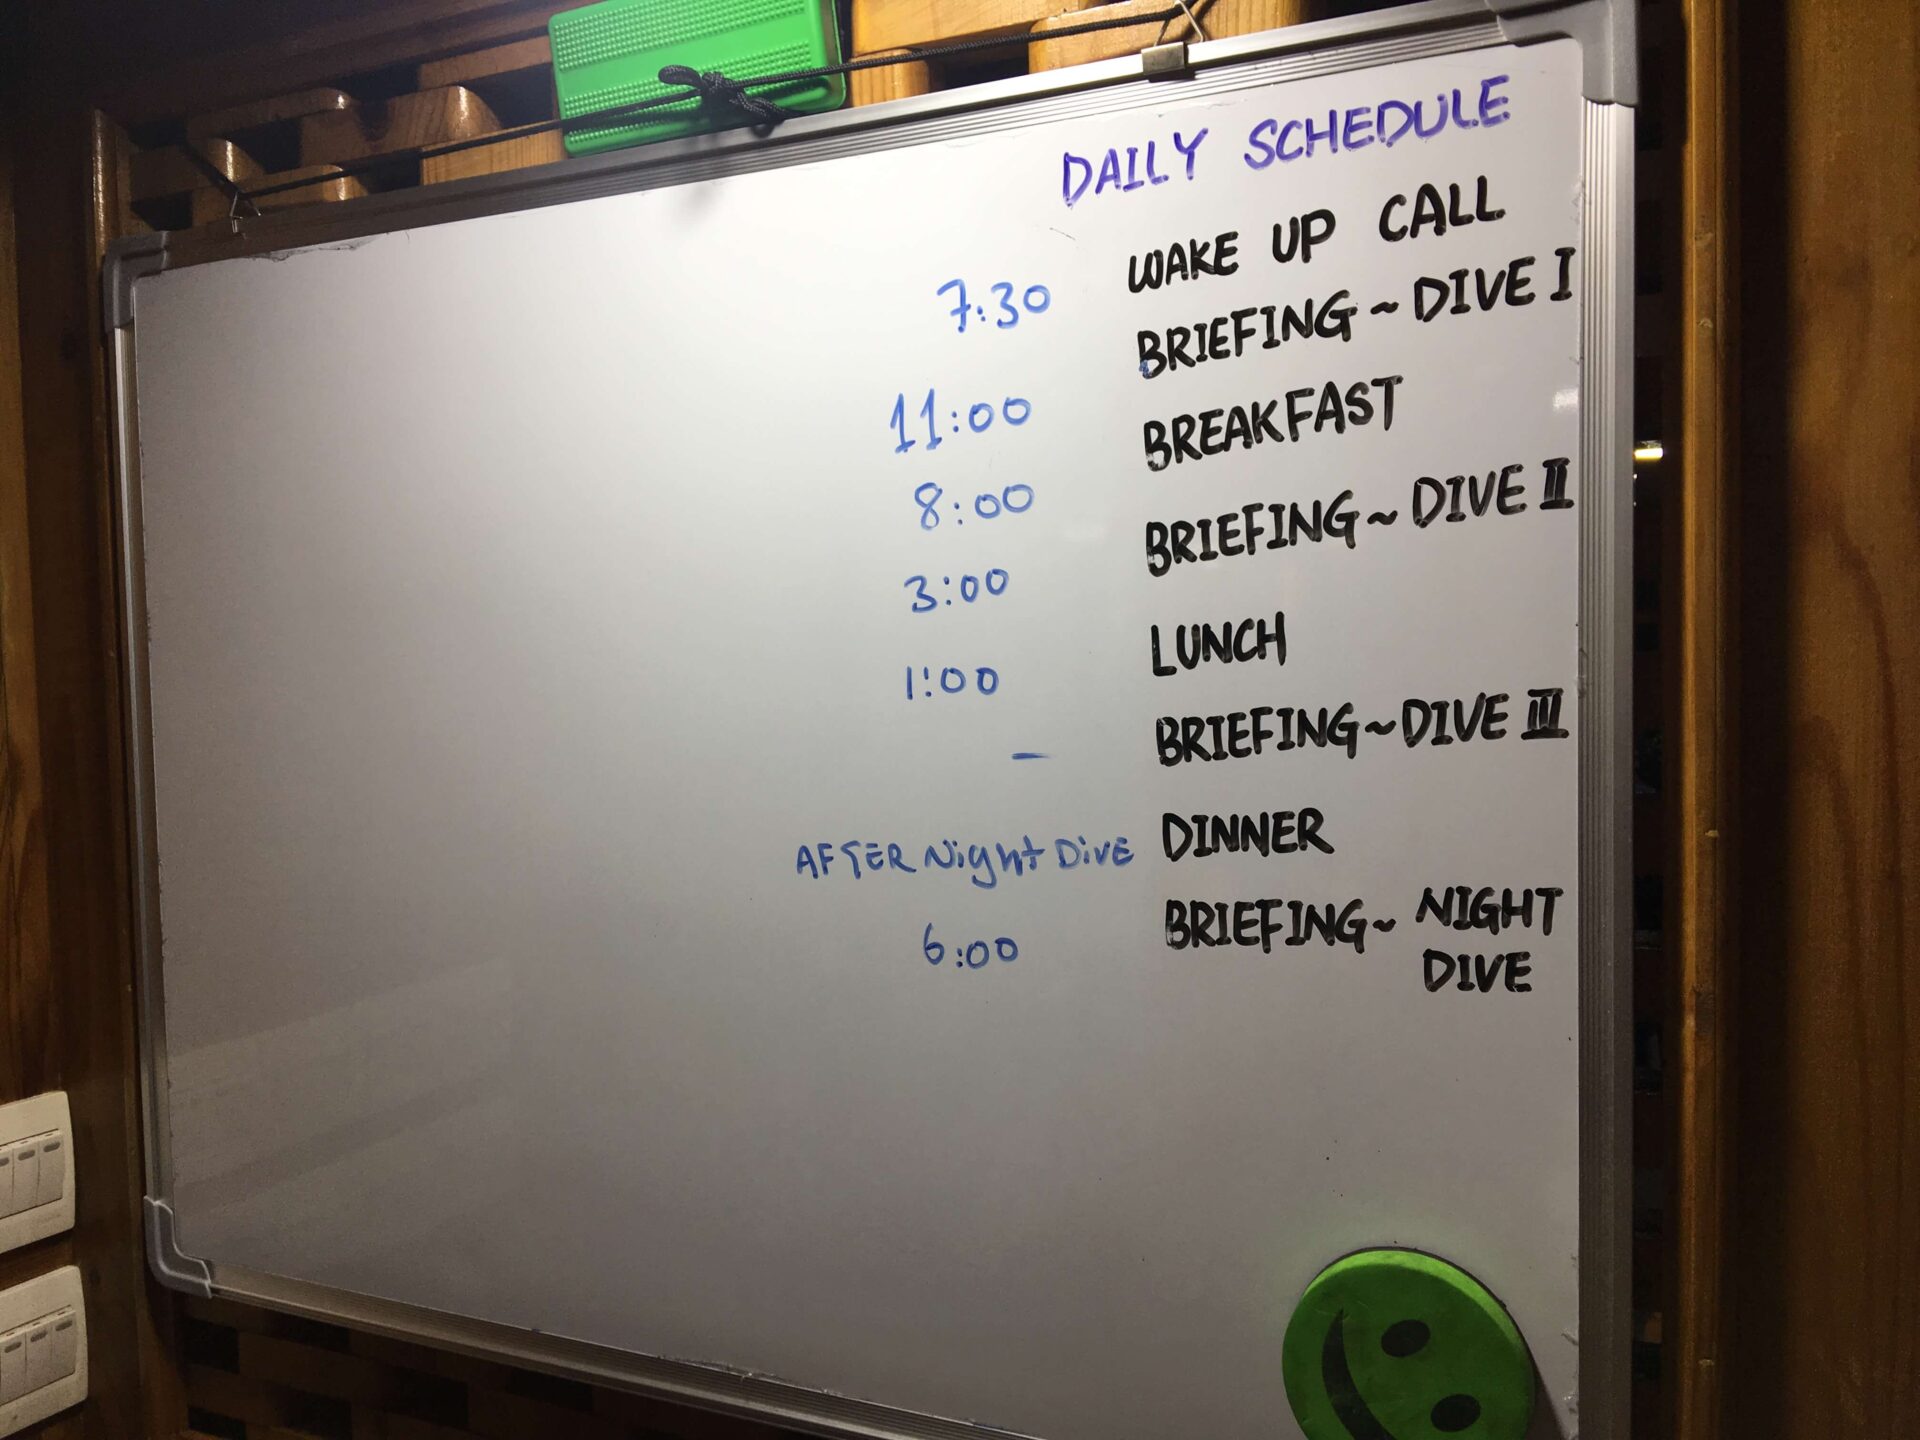 DAILY SCHEDULE
7:30 WAKE UP CALL
11:00 BRIEFING ~ DIVE I
8:00 BREAKFAST
3:00 BRIEFING ~ DIVE II
1:00 LUNCH
- BRIEFING ~ DIVE III
AFTER Night DivE DINNER
6:00 BRIEFING ~ NIGHT
DIVE